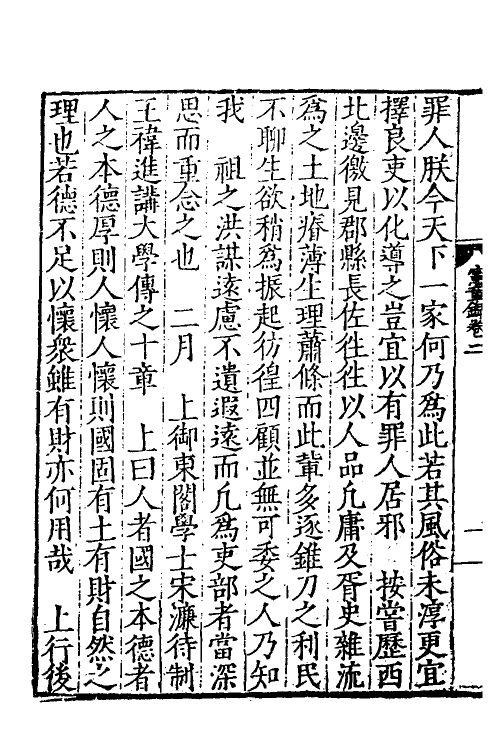 罪人朕今天下一家何乃爲此若其風俗未淳更宜
擇良吏以化導之豈宜以有罪人居邪　按嘗歷西
北邊徼見郡縣長佐徃徃以人品凡庸及胥史雜流
爲之土地瘠薄生理蕭條而此輩多逐錐刀之利民
不聊生欲稍爲振起彷徨四顧並無可委之人乃知
我　祖之洪謀遠慮不遺遐遠而凡爲吏部者當深
思而重念之也　二月　上御東閣學士宋濂待制
王禕進講大學傳之十章　上曰人者國之本德者
人之本德厚則人懷人懷則國固有土有財自然之
理也若德不足以懷衆雖有財亦何用哉　上行後
卷二